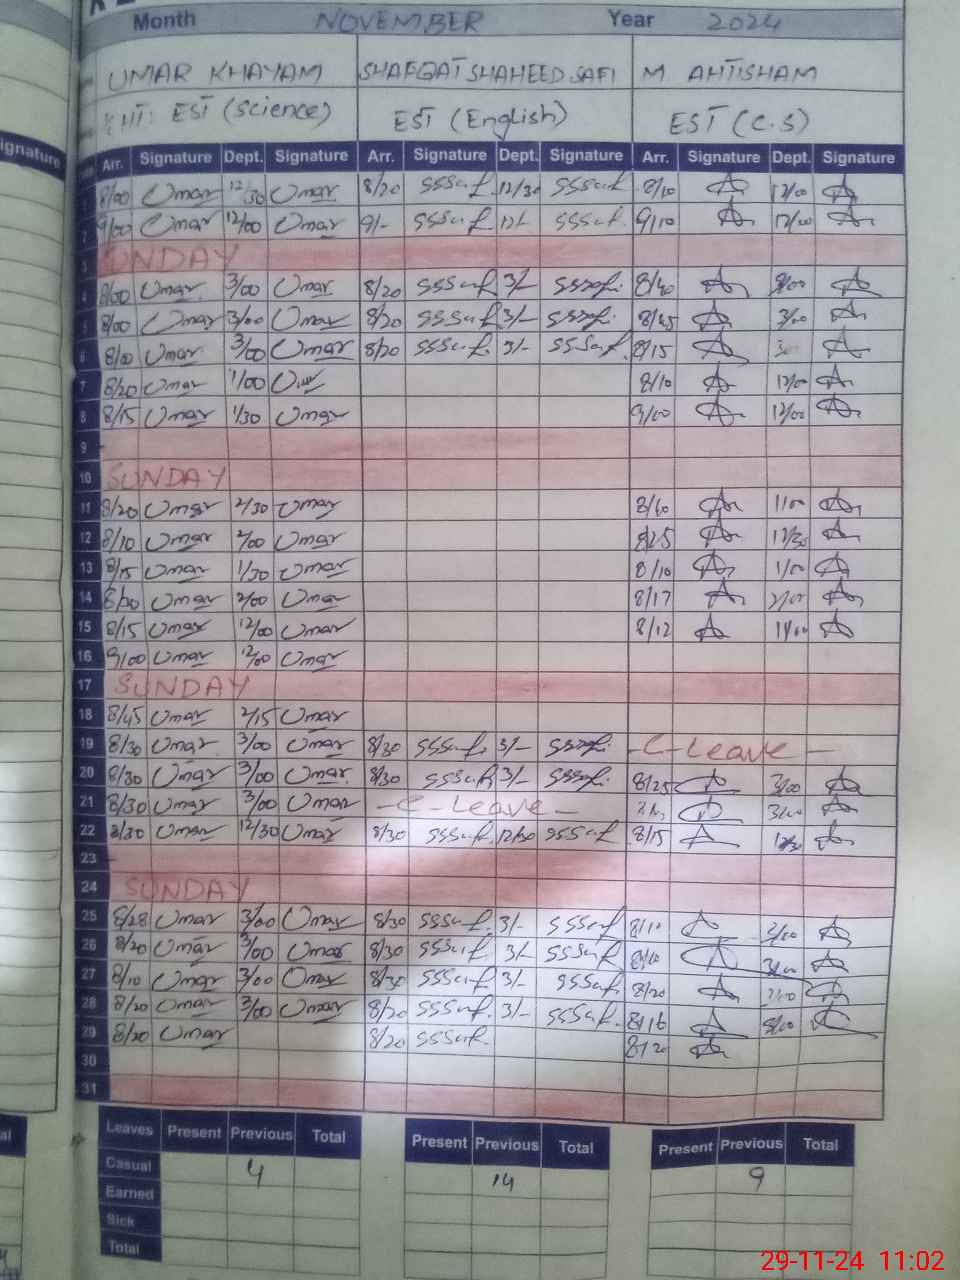 Month NOVEMBER Year 2024
UMAR KHAYAM SHAFQAT SHAHEED SAFI M AHTISHAM
EST (Science) EST (English) EST (C.S)
ignature Arr. Signature Dept. Signature Arr. Signature Dept. Signature Arr. Signature Dept. Signature
1 8/00 Umar 12/30 Umar 8/20 SSSaf 12/30 SSSaf 8/10 12/00
2 9/00 Umar 12/00 Umar 9/- SSSaf 12/- SSSaf 9/10 12/00
3 SUNDAY
4 8/00 Umar 3/00 Umar 8/20 SSSaf 3/- SSSafi 8/40 3/00
5 8/00 Umar 3/00 Umar 8/20 SSSaf 3/- SSSafi 8/45 3/00
6 8/00 Umar 3/00 Umar 8/20 SSSaf 3/- SSSaf 8/15
7 8/20 Umar 1/00 Umar 8/10 12/00
8 8/15 Umar 1/30 Umar 9/00 12/00
9
10 SUNDAY
11 8/20 Umar 2/30 Umar 8/40 1/00
12 8/10 Umar 2/00 Umar 8/25 12/30
13 8/15 Umar 1/30 Umar 8/10 1/00
14 Umar 2/00 Umar 8/17 2/00
15 8/15 Umar 12/00 Umar 8/12
16 9/00 Umar 12/00 Umar
17 SUNDAY
18 8/45 Umar 2/15 Umar
19 8/30 Umar 3/00 Umar 8/30 SSSaf 3/- SSSafi -C-Leave-
20 8/30 Umar 3/00 Umar 8/30 SSSaf 3/- SSSafi 8/25 3/00
21 8/30 Umar 3/00 Umar -C-Leave- 3/00
22 8/30 Umar 12/30 Umar 8/30 SSSaf 12/30 SSSaf 8/15
23
24 SUNDAY
25 8/28 Umar 3/00 Umar 8/30 SSSaf 3/- SSSaf 8/10 3/00
26 8/20 Umar 3/00 Umar 8/30 SSSaf 3/- SSSaf 8/10 3/00
27 8/10 Umar 3/00 Umar 8/30 SSSaf 3/- SSSaf 8/20
28 8/20 Umar 3/00 Umar 8/20 SSSaf 3/- SSSaf 8/16 3/00
29 8/20 Umar 8/20 SSSaf 8/20
30
31
Leaves Present Previous Total Present Previous Total Present Previous Total
Casual 4 14 9
Earned
Sick
Total
29-11-24 11:02